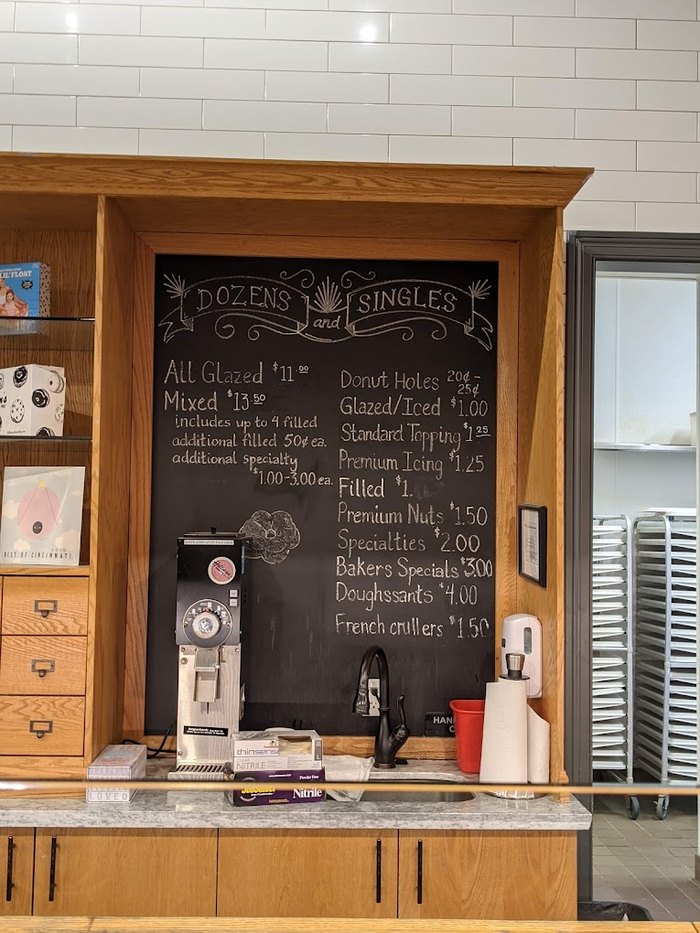 DOZENS and SINGLES
All Glazed $11.00
Mixed $13.50
includes up to 4 filled
additional filled 50¢ ea.
additional specialty
$1.00-3.00 ea.
Donut Holes 20¢-
25¢
Glazed/Iced $1.00
Standard Topping $1.25
Premium Icing $1.25
Filled $1.
Premium Nuts $1.50
Specialties $2.00
Bakers Specials $3.00
Doughssants $4.00
French crullers $1.50
LIL' FLOAT
BEST OF CINCINNATI
HAND
LOVED
thinsense
NITRILE
Powder Free
Nitrile